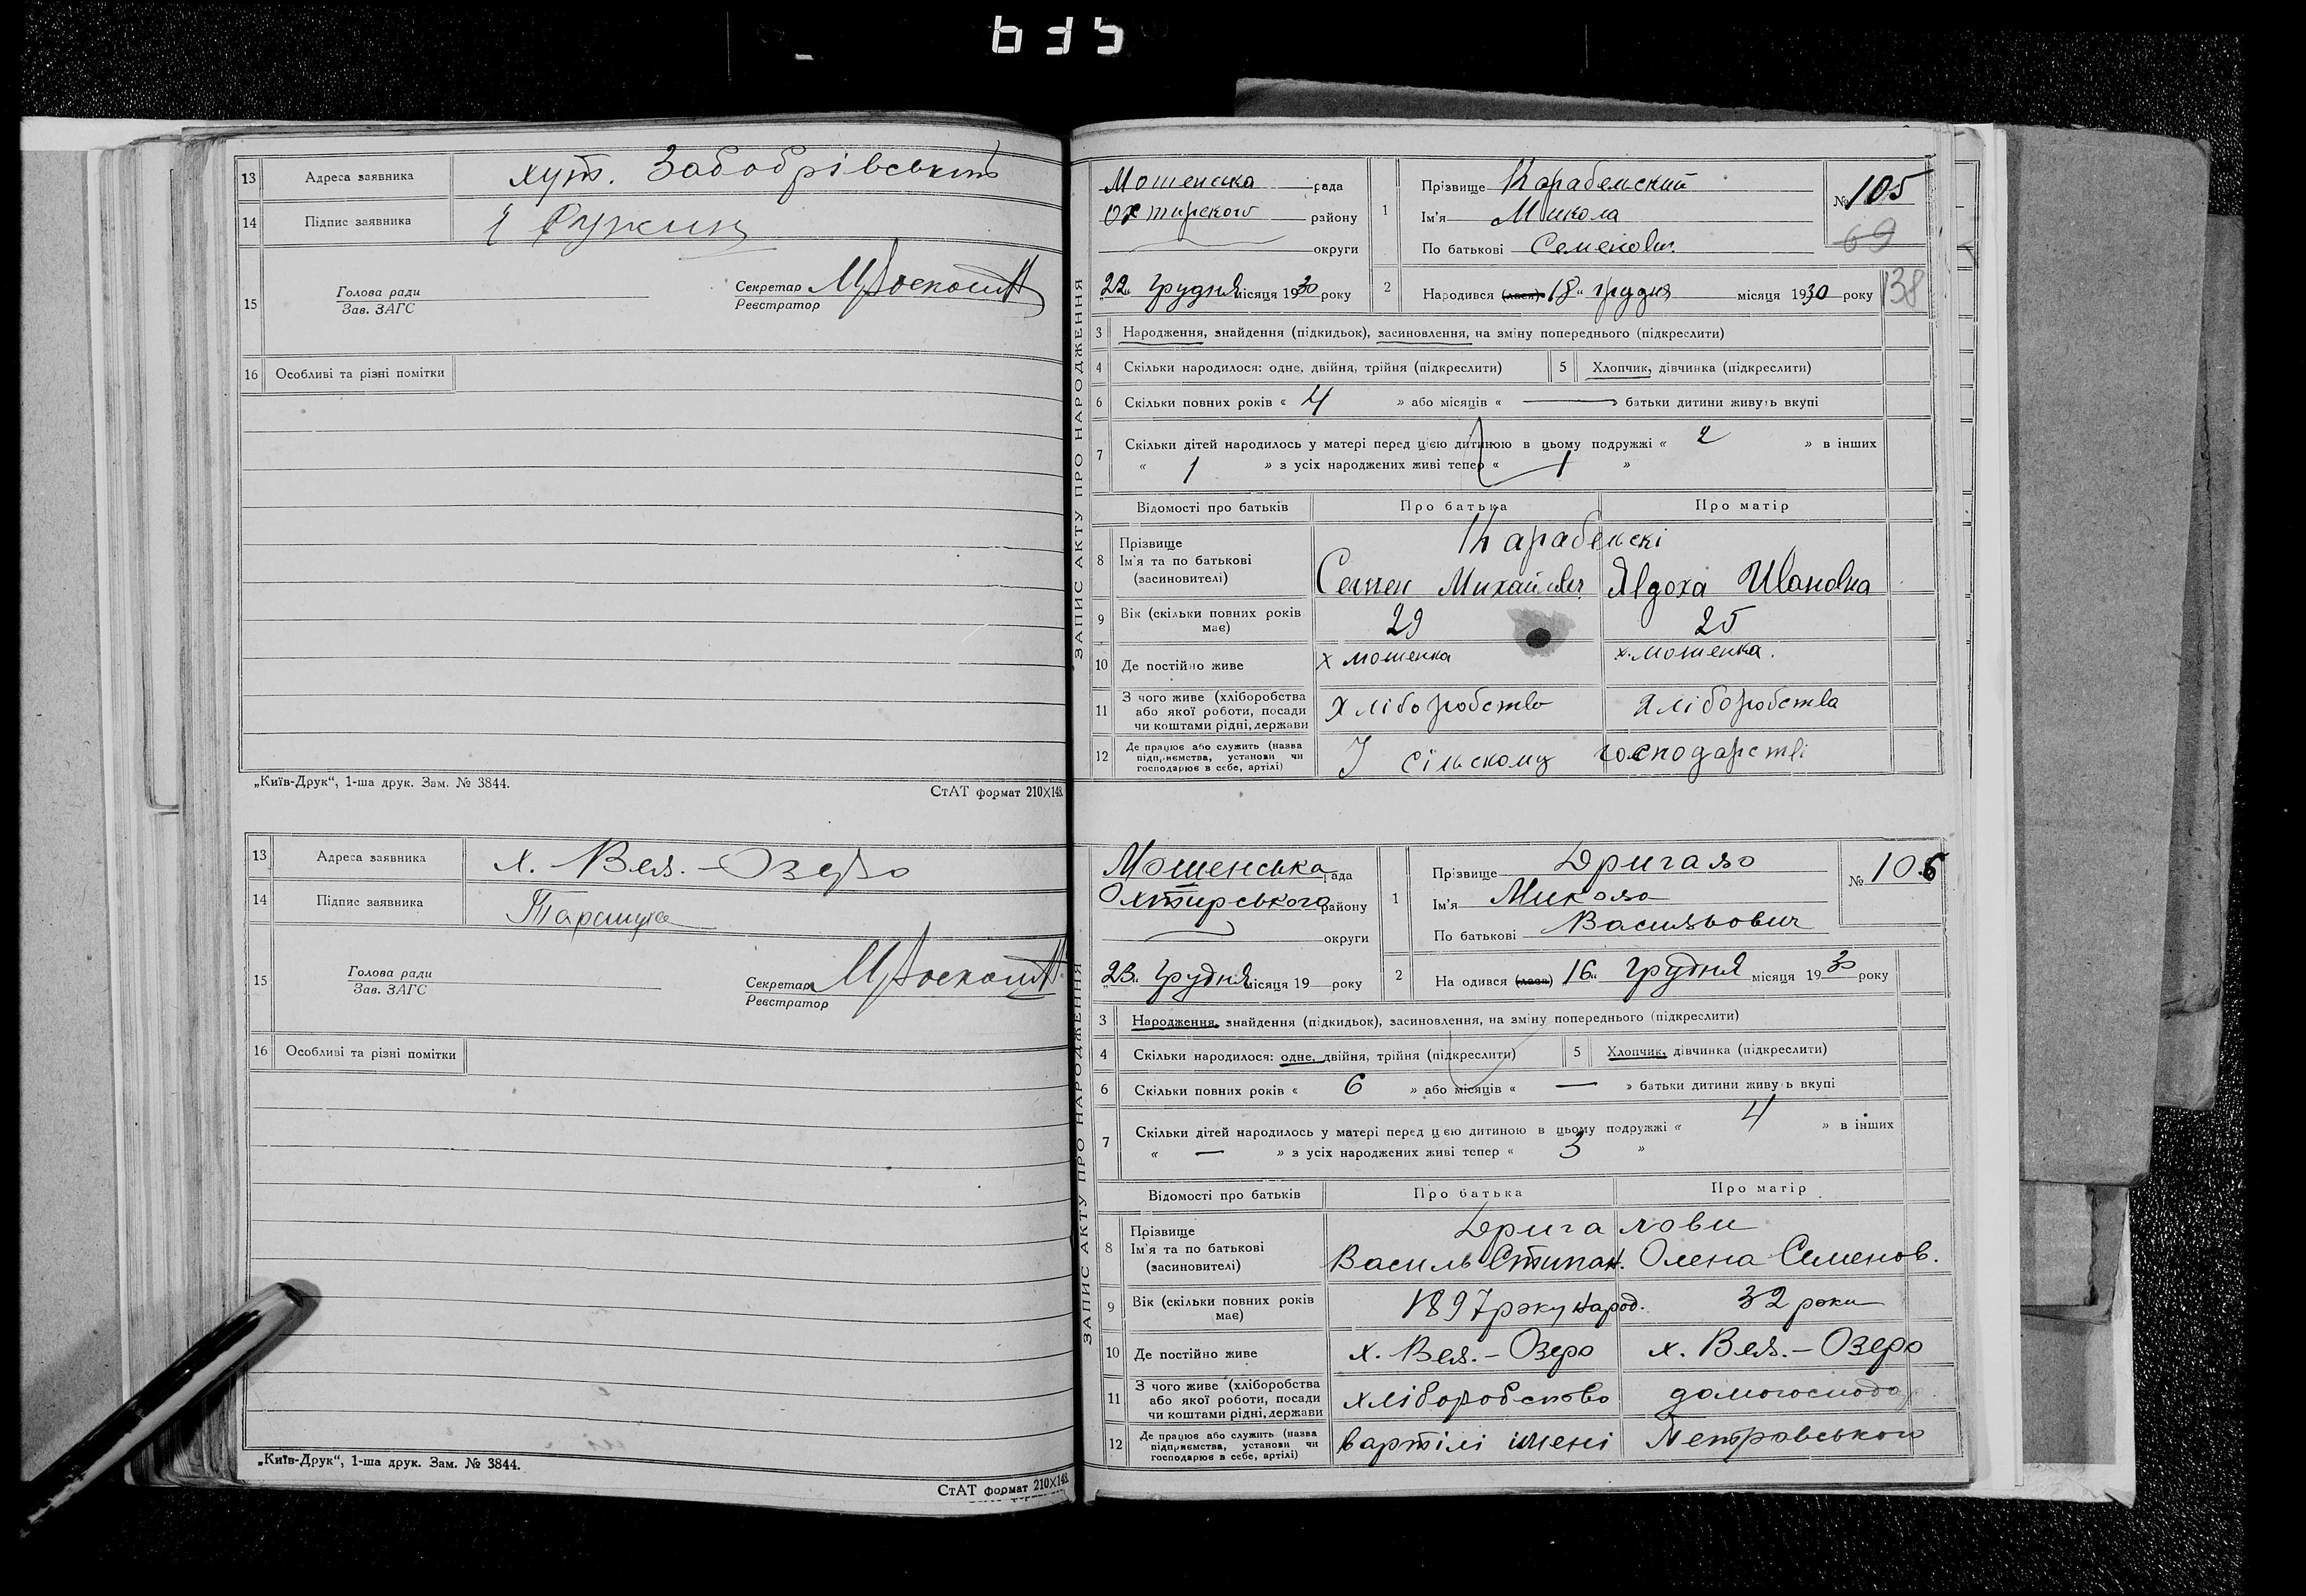 635
13 Адреса заявника хут. Забобрівський
14 Підпис заявника
15 Голова ради
Зав. ЗАГС
Секретар
Реєстратор
16 Особливі та різні помітки
„Київ-Друк“, 1-ша друк. Зам. № 3844.
СтАТ формат 210×148
13 Адреса заявника х. Вел.-Озеро
14 Підпис заявника
15 Голова ради
Зав. ЗАГС
Секретар
Реєстратор
16 Особливі та різні помітки
„Київ-Друк“, 1-ша друк. Зам. № 3844.
СтАТ формат 210×148
ЗАПИС АКТУ ПРО НАРОДЖЕННЯ
Мошенська рада
Охтирского району
округи
22 грудня місяця 1930 року
1 Прізвище Карабельский
Ім'я Микола
По батькові Семенович
№ 105
69
138
2 Народився (лася) 18 грудня місяця 1930 року
3 Народження, знайдення (підкидьок), засиновлення, на зміну попереднього (підкреслити)
4 Скільки народилося: одне, двійня, трійня (підкреслити) 5 Хлопчик, дівчинка (підкреслити)
6 Скільки повних років « 4 » або місяців « — » батьки дитини живуть вкупі
7 Скільки дітей народилось у матері перед цією дитиною в цьому подружжі « 2 » в інших
« 1 » з усіх народжених живі тепер « 1 »
Відомості про батьків Про батька Про матір
8 Прізвище
Ім'я та по батькові
(засновителі)
Карабельскі
Семен Михайлович Явдоха Ивановна
9 Вік (скільки повних років має) 29 25
10 Де постійно живе х Мошенка х. Мошенка.
11 З чого живе (хліборобства
або якої роботи, посади
чи коштами рідні, держави
хліборобство хліборобства
12 Де працює або служить (назва
підприємства, установи чи
господарює в себе, артілі)
У сільскому господарстві
ЗАПИС АКТУ ПРО НАРОДЖЕННЯ
Мошенська рада
Охтирського району
округи
23 грудня місяця 19 року
1 Прізвище Дригало
Ім'я Микола
По батькові Васильович
№ 106
2 Народився (лася) 16 грудня місяця 1930 року
3 Народження, знайдення (підкидьок), засиновлення, на зміну попереднього (підкреслити)
4 Скільки народилося: одне, двійня, трійня (підкреслити) 5 Хлопчик, дівчинка (підкреслити)
6 Скільки повних років « 6 » або місяців « — » батьки дитини живуть вкупі
7 Скільки дітей народилось у матері перед цією дитиною в цьому подружжі « 4 » в інших
« — » з усіх народжених живі тепер « 3 »
Відомості про батьків Про батька Про матір
8 Прізвище
Ім'я та по батькові
(засиновителі)
Дригалови
Василь Стипан. Олена Семенов.
9 Вік (скільки повних років має) 1897 року народ. 32 роки
10 Де постійно живе х. Вел.-Озеро х. Вел.-Озеро
11 З чого живе (хліборобства
або якої роботи, посади
чи коштами рідні, держави
хліборобство домогосподар.
12 Де працює або служить (назва
підприємства, установи чи
господарює в себе, артілі)
вартілі імені Петровського